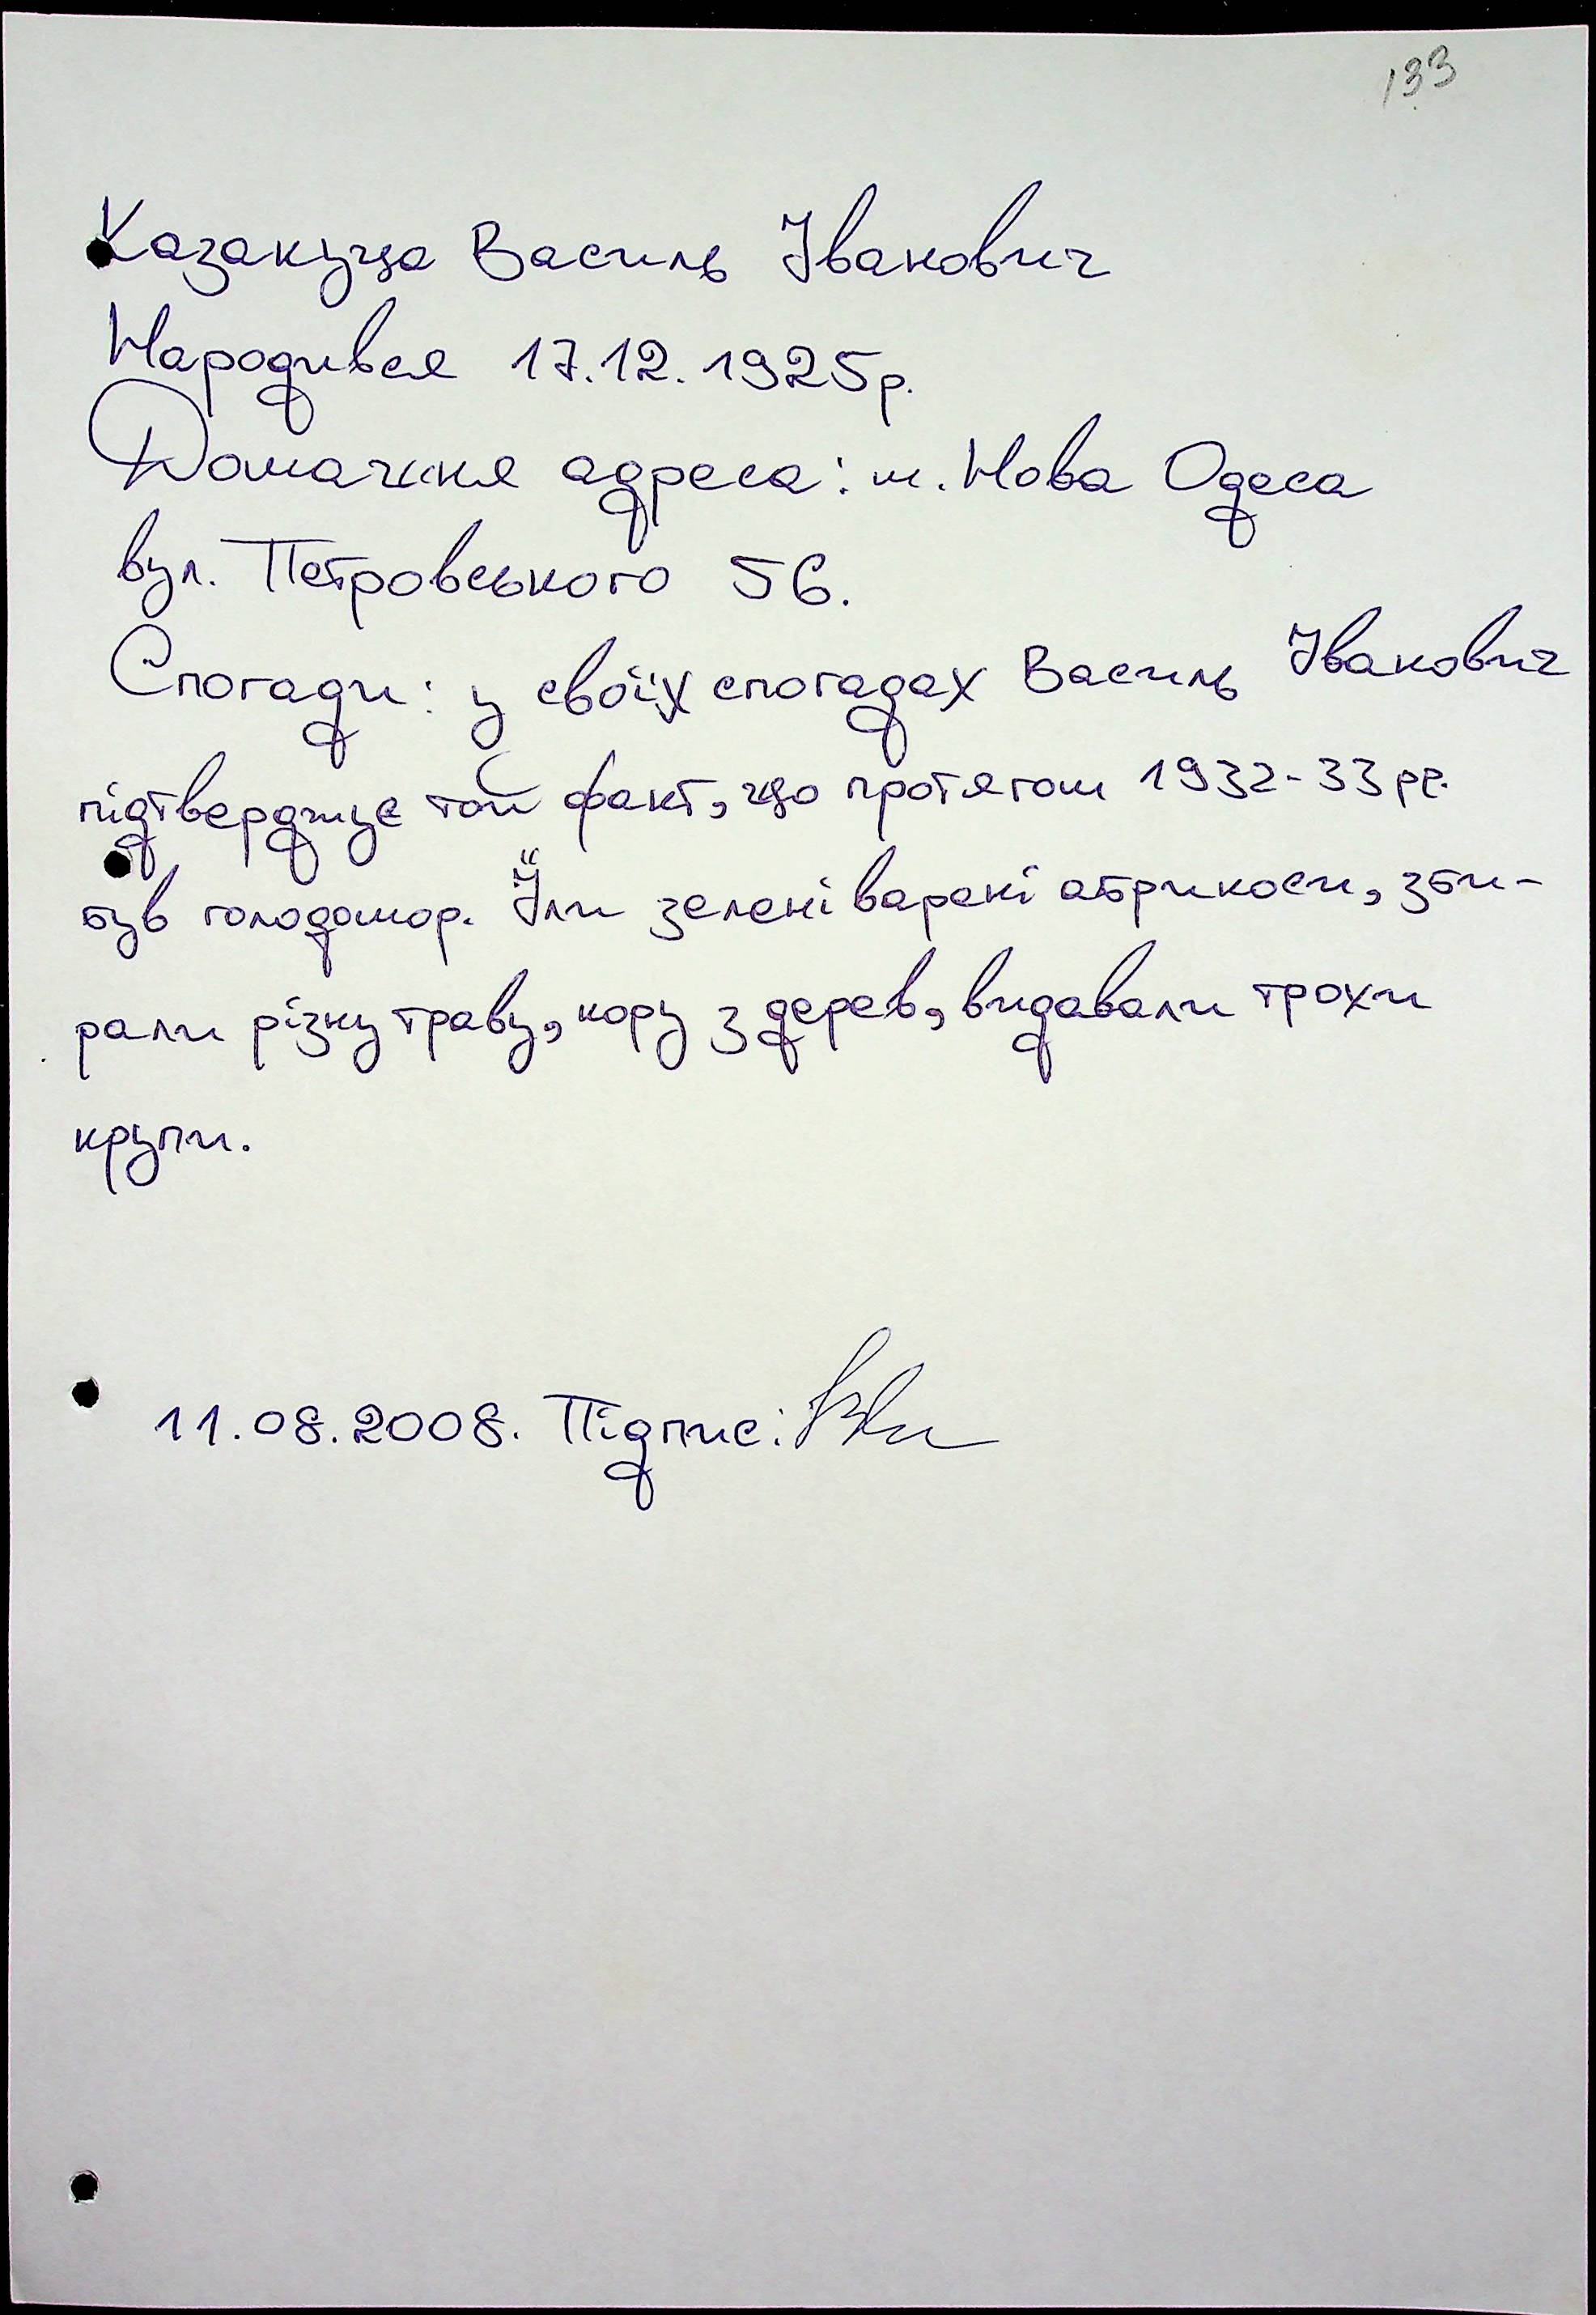 133
Казакуца Василь Іванович
Народився 17.12.1925р.
Домашня адреса: м. Нова Одеса
вул. Петровського 56.
Спогади: у своїх спогадах Василь Іванович
підтверджує той факт, що протягом 1932-33 рр.
був голодомор. Їли зелені варені абрикоси, зби-
рали різну траву, кору з дерев, видавали трохи
крупи.
11.08.2008. Підпис: